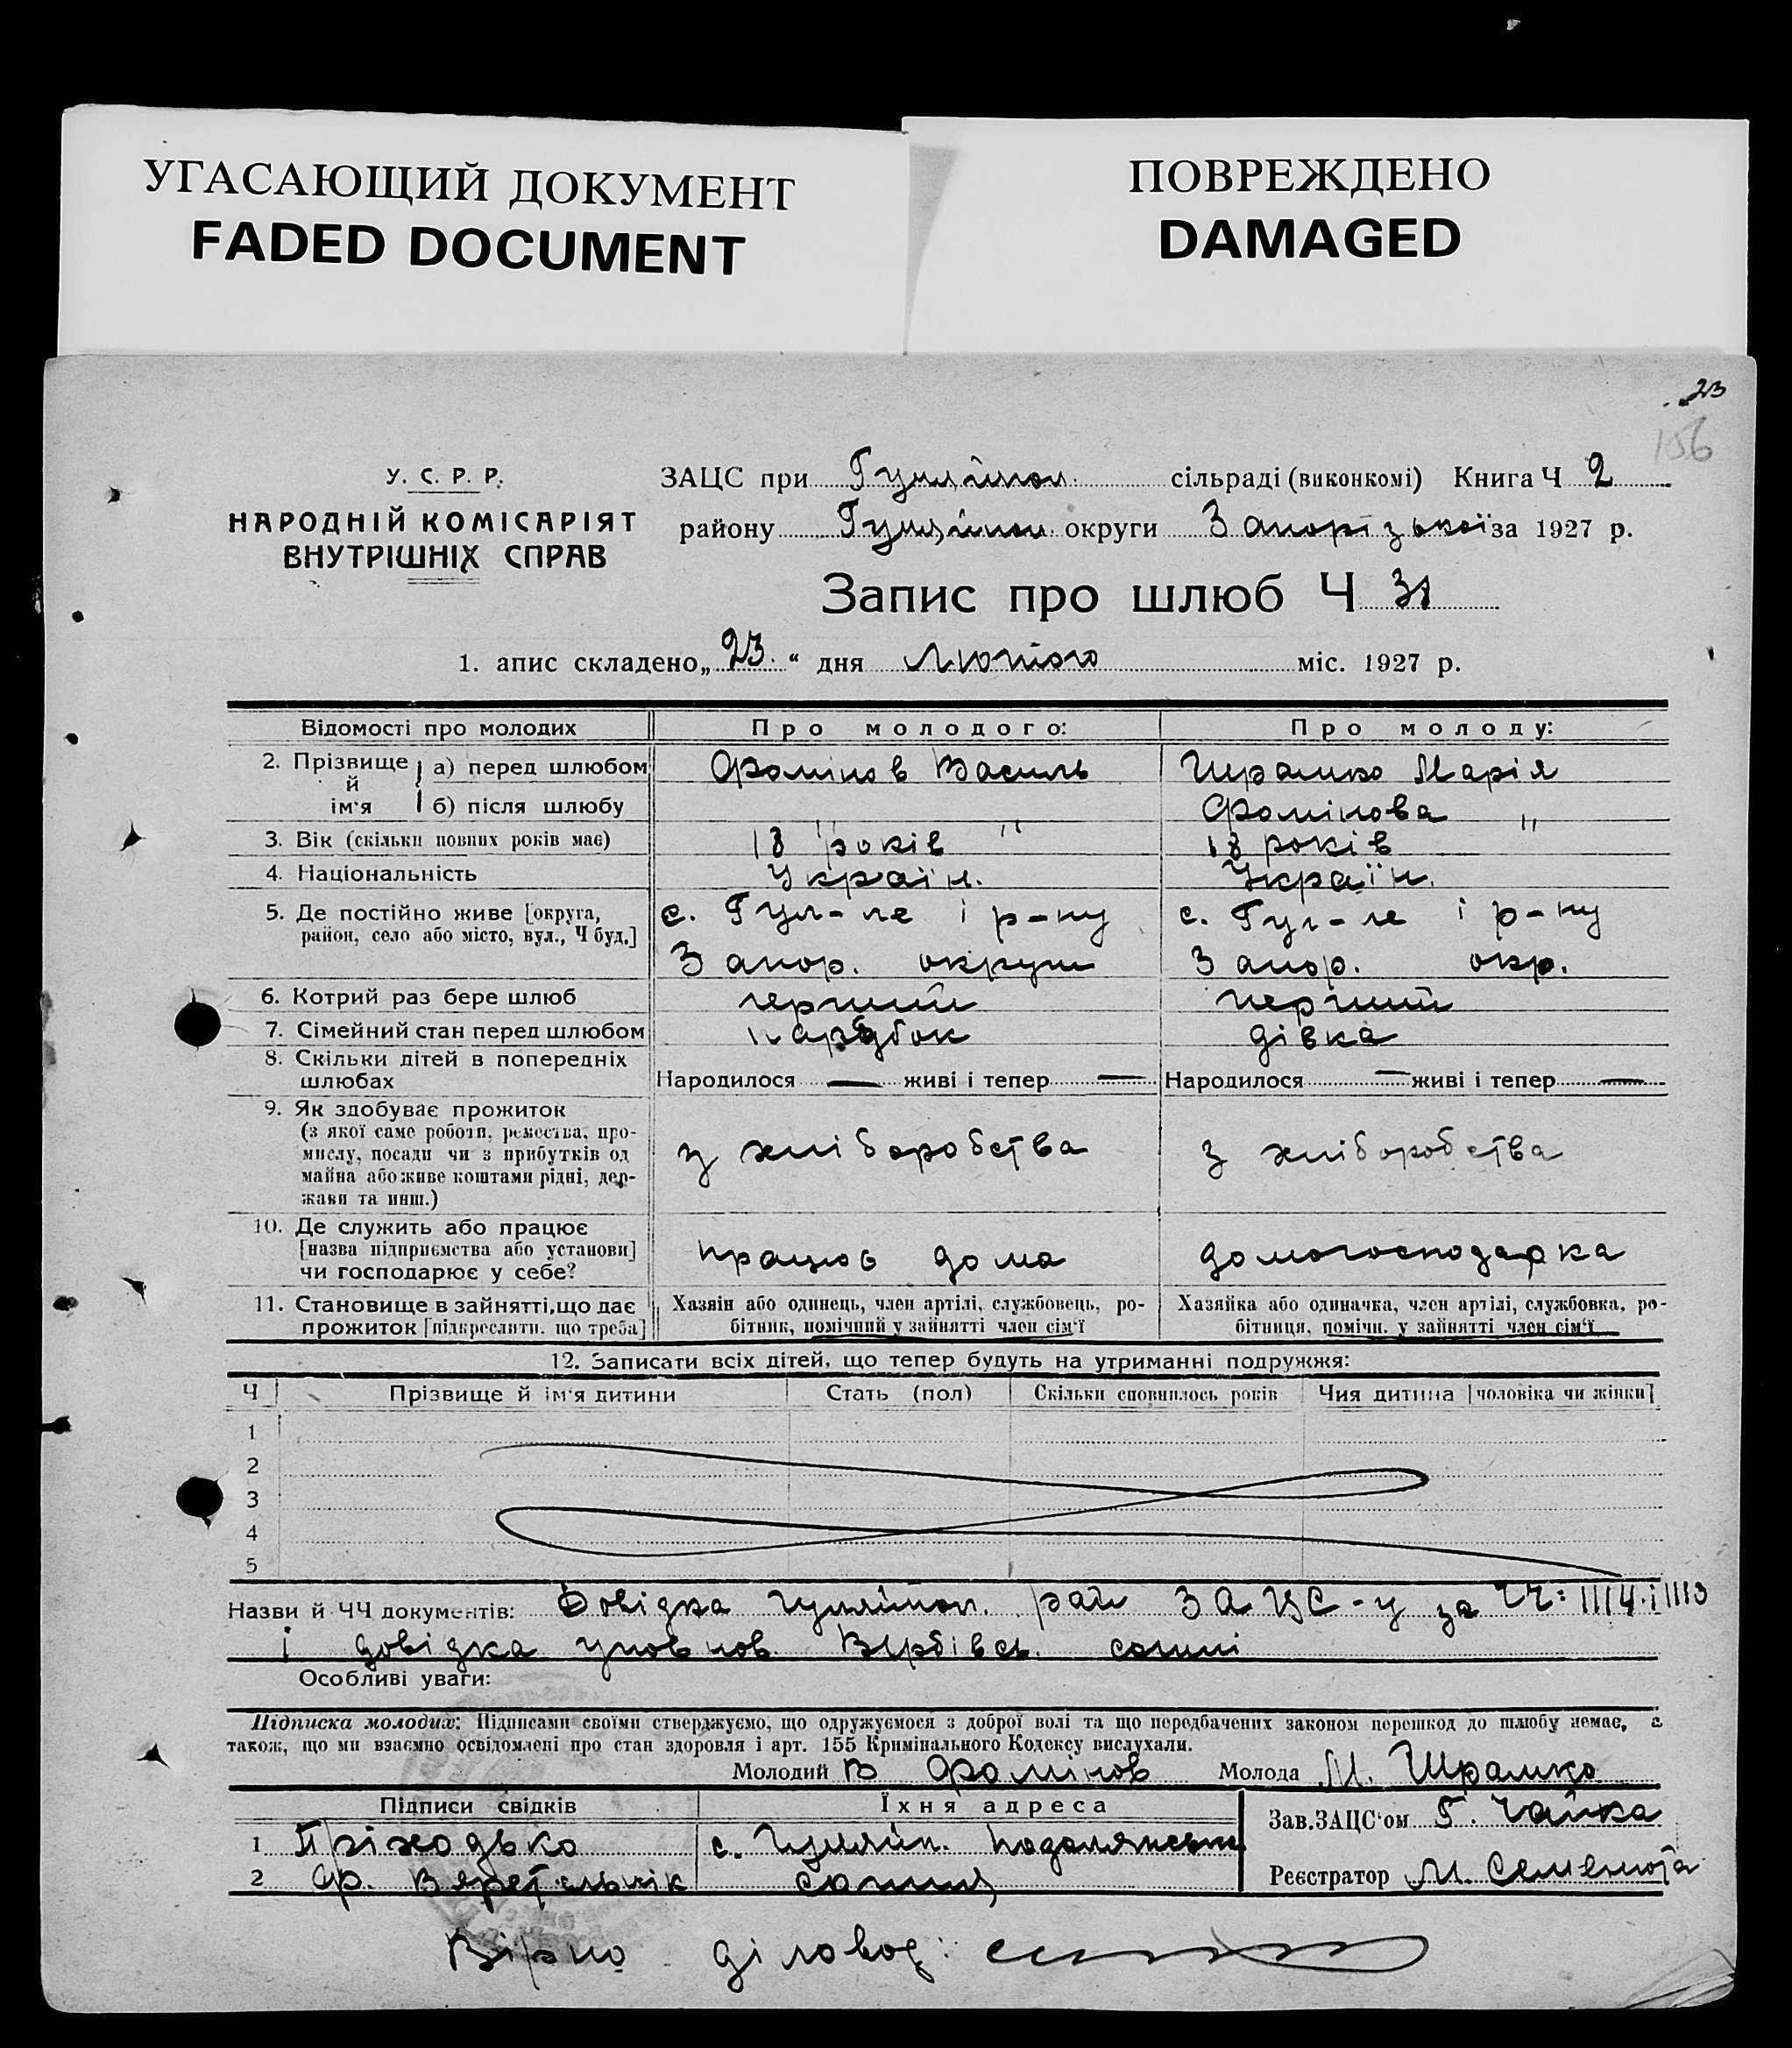 УГАСАЮЩИЙ ДОКУМЕНТ
FADED DOCUMENT
ПОВРЕЖДЕНО
DAMAGED
23
156
У. С. Р. Р.
НАРОДНІЙ КОМІСАРІЯТ
ВНУТРІШНІХ СПРАВ
ЗАЦС при Гуляйпол. сільраді (виконкомі) Книга Ч 2
району Гуляйпол. округи Запорізької за 1927 р.
Запис про шлюб Ч 31
1. апис складено „ 23. “ дня Лютого міс. 1927 р.
Відомості про молодих
Про молодого:
Про молоду:
2. Прізвище й ім'я
а) перед шлюбом
Фомінов Василь
Шрамко Марія
б) після шлюбу
" "
Фомінова "
3. Вік (скільки повних років має)
18 років
18 років
4. Національність
Україн.
Україн.
5. Де постійно живе [округа,
район, село або місто, вул., Ч буд.]
с. Гул-ле і р-ну
Запор. округи
с. Гул-ле і р-ну
Запор. окр.
6. Котрий раз бере шлюб
перший
перший
7. Сімейний стан перед шлюбом
парубок
дівка
8. Скільки дітей в попередніх
шлюбах
Народилося — живі і тепер —
Народилося — живі і тепер —
9. Як здобуває прожиток
(з якої саме роботи, ремества, про-
мислу, посади чи з прибутків од
майна або живе коштами рідні, дер-
жави та инш.)
з хліборобства
з хліборобства
10. Де служить або працює
[назва підприємства або установи]
чи господарює у себе?
працює дома
домогосподарка
11. Становище в зайнятті, що дає
прожиток [підкреслити. що треба]
Хазяїн або одинець, член артілі, службовець, ро-
бітник, помічний у зайнятті член сім'ї
Хазяйка або одиначка, член артілі, службовка, ро-
бітниця, помічн. у зайнятті член сім'ї
12. Записати всіх дітей, що тепер будуть на утриманні подружжя:
Ч
Прізвище й ім'я дитини
Стать (пол)
Скільки сповнилось років
Чия дитина [чоловіка чи жінки]
1
2
3
4
5
Назви й ЧЧ документів: Довідка гуляйпол. рай ЗАЦС-у за ЧЧ: 1114 і 1113
і довідка уповнов. Вербівсь. сотні
Особливі уваги:
Підписка молодих: Підписами своїми стверджуємо, що одружуємося з доброї волі та що передбачених законом перешкод до шлюбу немає, а
також, що ми взаємно освідомлені про стан здоровля і арт. 155 Кримінального Кодексу вислухали.
Молодий В Фомінов Молода М. Шрамко
Підписи свідків
Їхня адреса
1 Пріходько
с. Гуляйп. Подолянської
2 Ф. Веретельнік
сотні
Зав. ЗАЦС'ом Г. Чайка
Реєстратор М. Семенюта
Вірно діловод: